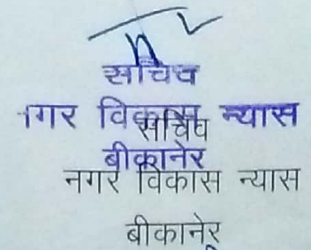 सचिव
नगर विकास न्यास
बीकानेर
सचिव
नगर विकास न्यास
बीकानेर